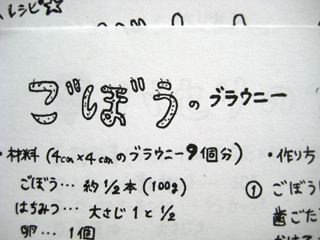 レシピ☆
ごぼうのブラウニー
・材料(4cm×4cmのブラウニー9個分)
ごぼう… 約1/2本(100g)
はちみつ… 大さじ1と1/2
卵… 1個
・作り方
① ごぼう
歯ごた